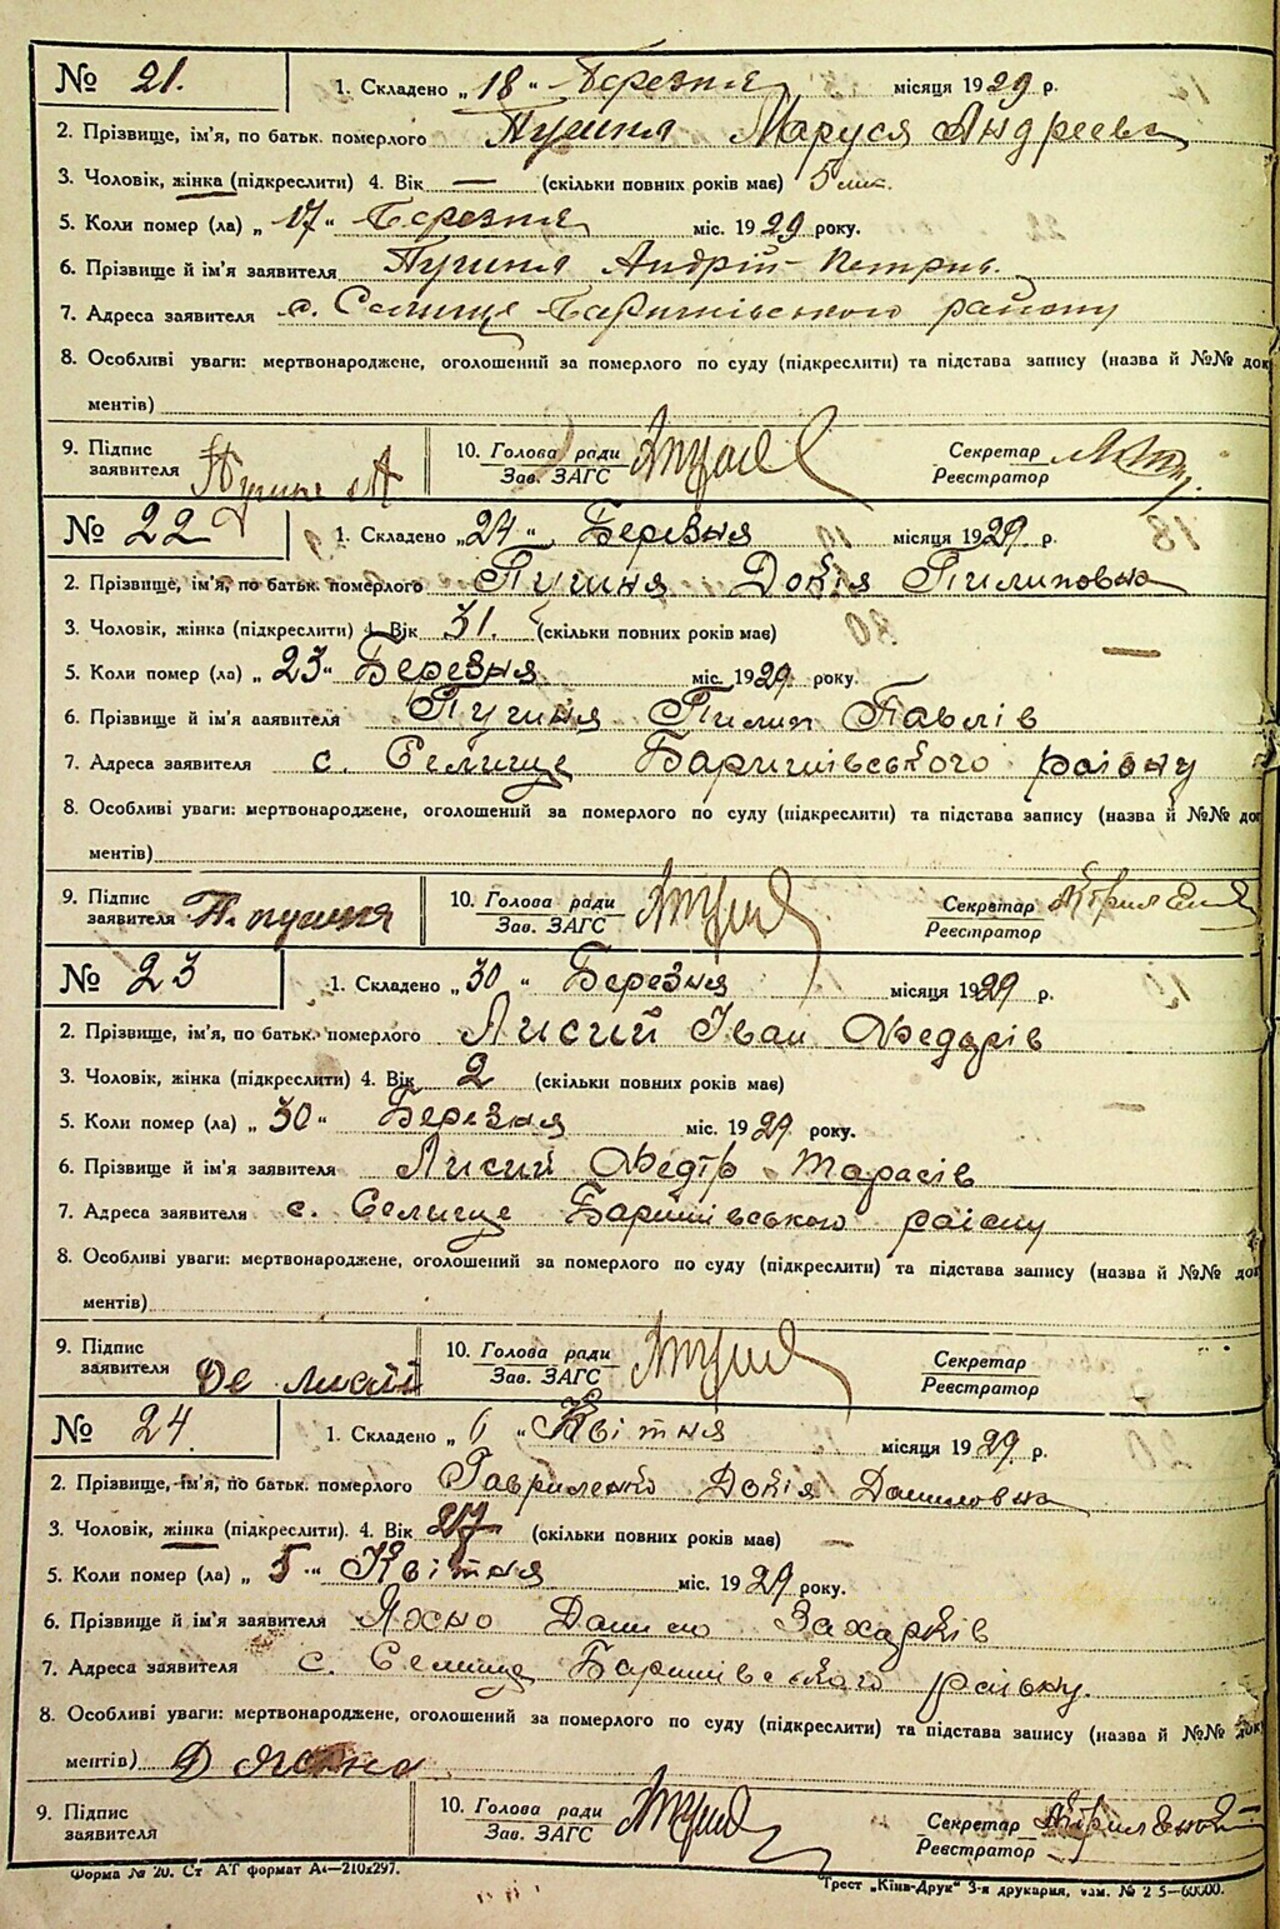 № 21. 1. Складено „18“ Березня місяця 1929 р.
2. Прізвище, ім'я, по батьк. померлого Пугиня Маруся Андреевн
3. Чоловік, жінка (підкреслити) 4. Вік — (скільки повних років має) 5 міс.
5. Коли помер (ла) „17“ Березня міс. 1929 року.
6. Прізвище й ім'я заявителя Пугиня Андрій Петрів.
7. Адреса заявителя с. Селище Баришівського району
8. Особливі уваги: мертвонароджене, оголошений за померлого по суду (підкреслити) та підстава запису (назва й №№ док
ментів)
9. Підпис заявителя Пугиня А 10. Голова ради Зав. ЗАГС Секретар Реєстратор
№ 22 1. Складено „24“ Березня місяця 1929 р.
2. Прізвище, ім'я, по батьк. померлого Пугиня Докія Пилиповна
3. Чоловік, жінка (підкреслити) 4. Вік 31. (скільки повних років має) —
5. Коли помер (ла) „23“ Березня міс. 1929 року.
6. Прізвище й ім'я заявителя Пугиня Пилип Павлів
7. Адреса заявителя с. Селище Баришівського району
8. Особливі уваги: мертвонароджене, оголошений за померлого по суду (підкреслити) та підстава запису (назва й №№ док
ментів)
9. Підпис заявителя П. пугиня 10. Голова ради Зав. ЗАГС Секретар Реєстратор
№ 23 1. Складено „30“ Березня місяця 1929 р.
2. Прізвище, ім'я, по батьк. померлого Лисий Іван Федорів
3. Чоловік, жінка (підкреслити) 4. Вік 2 (скільки повних років має) —
5. Коли помер (ла) „30“ Березня міс. 1929 року.
6. Прізвище й ім'я заявителя Лисий Федір Тарасів
7. Адреса заявителя с. Селище Баришівського району
8. Особливі уваги: мертвонароджене, оголошений за померлого по суду (підкреслити) та підстава запису (назва й №№ док
ментів)
9. Підпис заявителя лисий 10. Голова ради Зав. ЗАГС Секретар Реєстратор
№ 24. 1. Складено „6“ Квітня місяця 1929 р.
2. Прізвище, ім'я, по батьк. померлого Гавриленко Докія Даниловна
3. Чоловік, жінка (підкреслити). 4. Вік 27 (скільки повних років має) —
5. Коли помер (ла) „5“ Квітня міс. 1929 року.
6. Прізвище й ім'я заявителя Яхно Данило Захарків
7. Адреса заявителя с. Селище Баришівського району.
8. Особливі уваги: мертвонароджене, оголошений за померлого по суду (підкреслити) та підстава запису (назва й №№ док
ментів) Д
9. Підпис заявителя 10. Голова ради Зав. ЗАГС Секретар Реєстратор
Форма № 20. Ст АТ формат А4—210х297. Трест „Київ-Друк“ 3-я друкарня, зам. № 2 5—60000.